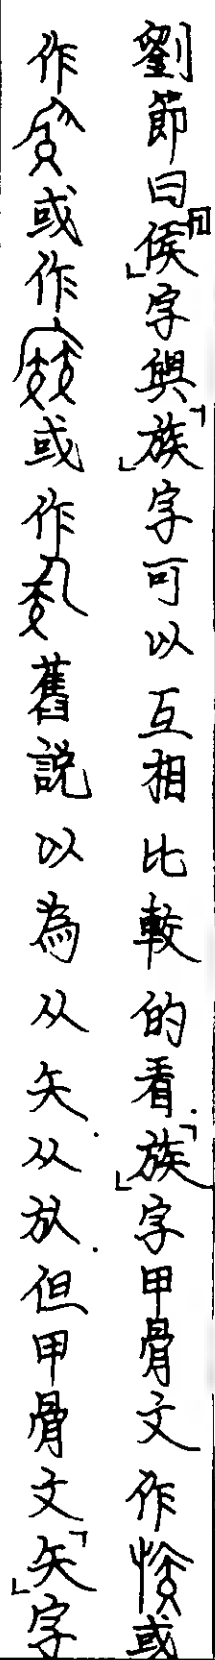 劉節曰「侯」字與「族」字可以互相比較的看.「族」字甲骨文作或
作或作或作舊説以為从矢.从㫃.但甲骨文「矢」字